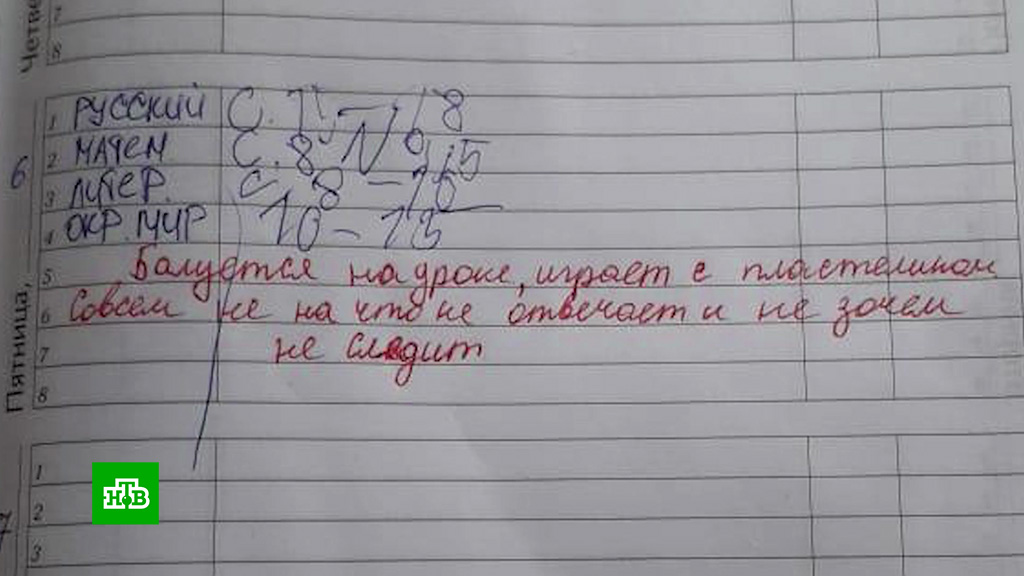 Четве
7
8
6
Пятница,
1 РУССКИЙ С.
2 МАТЕМ С. 8 N
3 ЛИТЕР. С. 8 –
4 ОКР. МИР 10 – 13
5 Балуется на уроке, играет с пластелином
6 Совсем не на что не отвечает и не зачем
7 не следит
8
7
1
2
3
НТВ